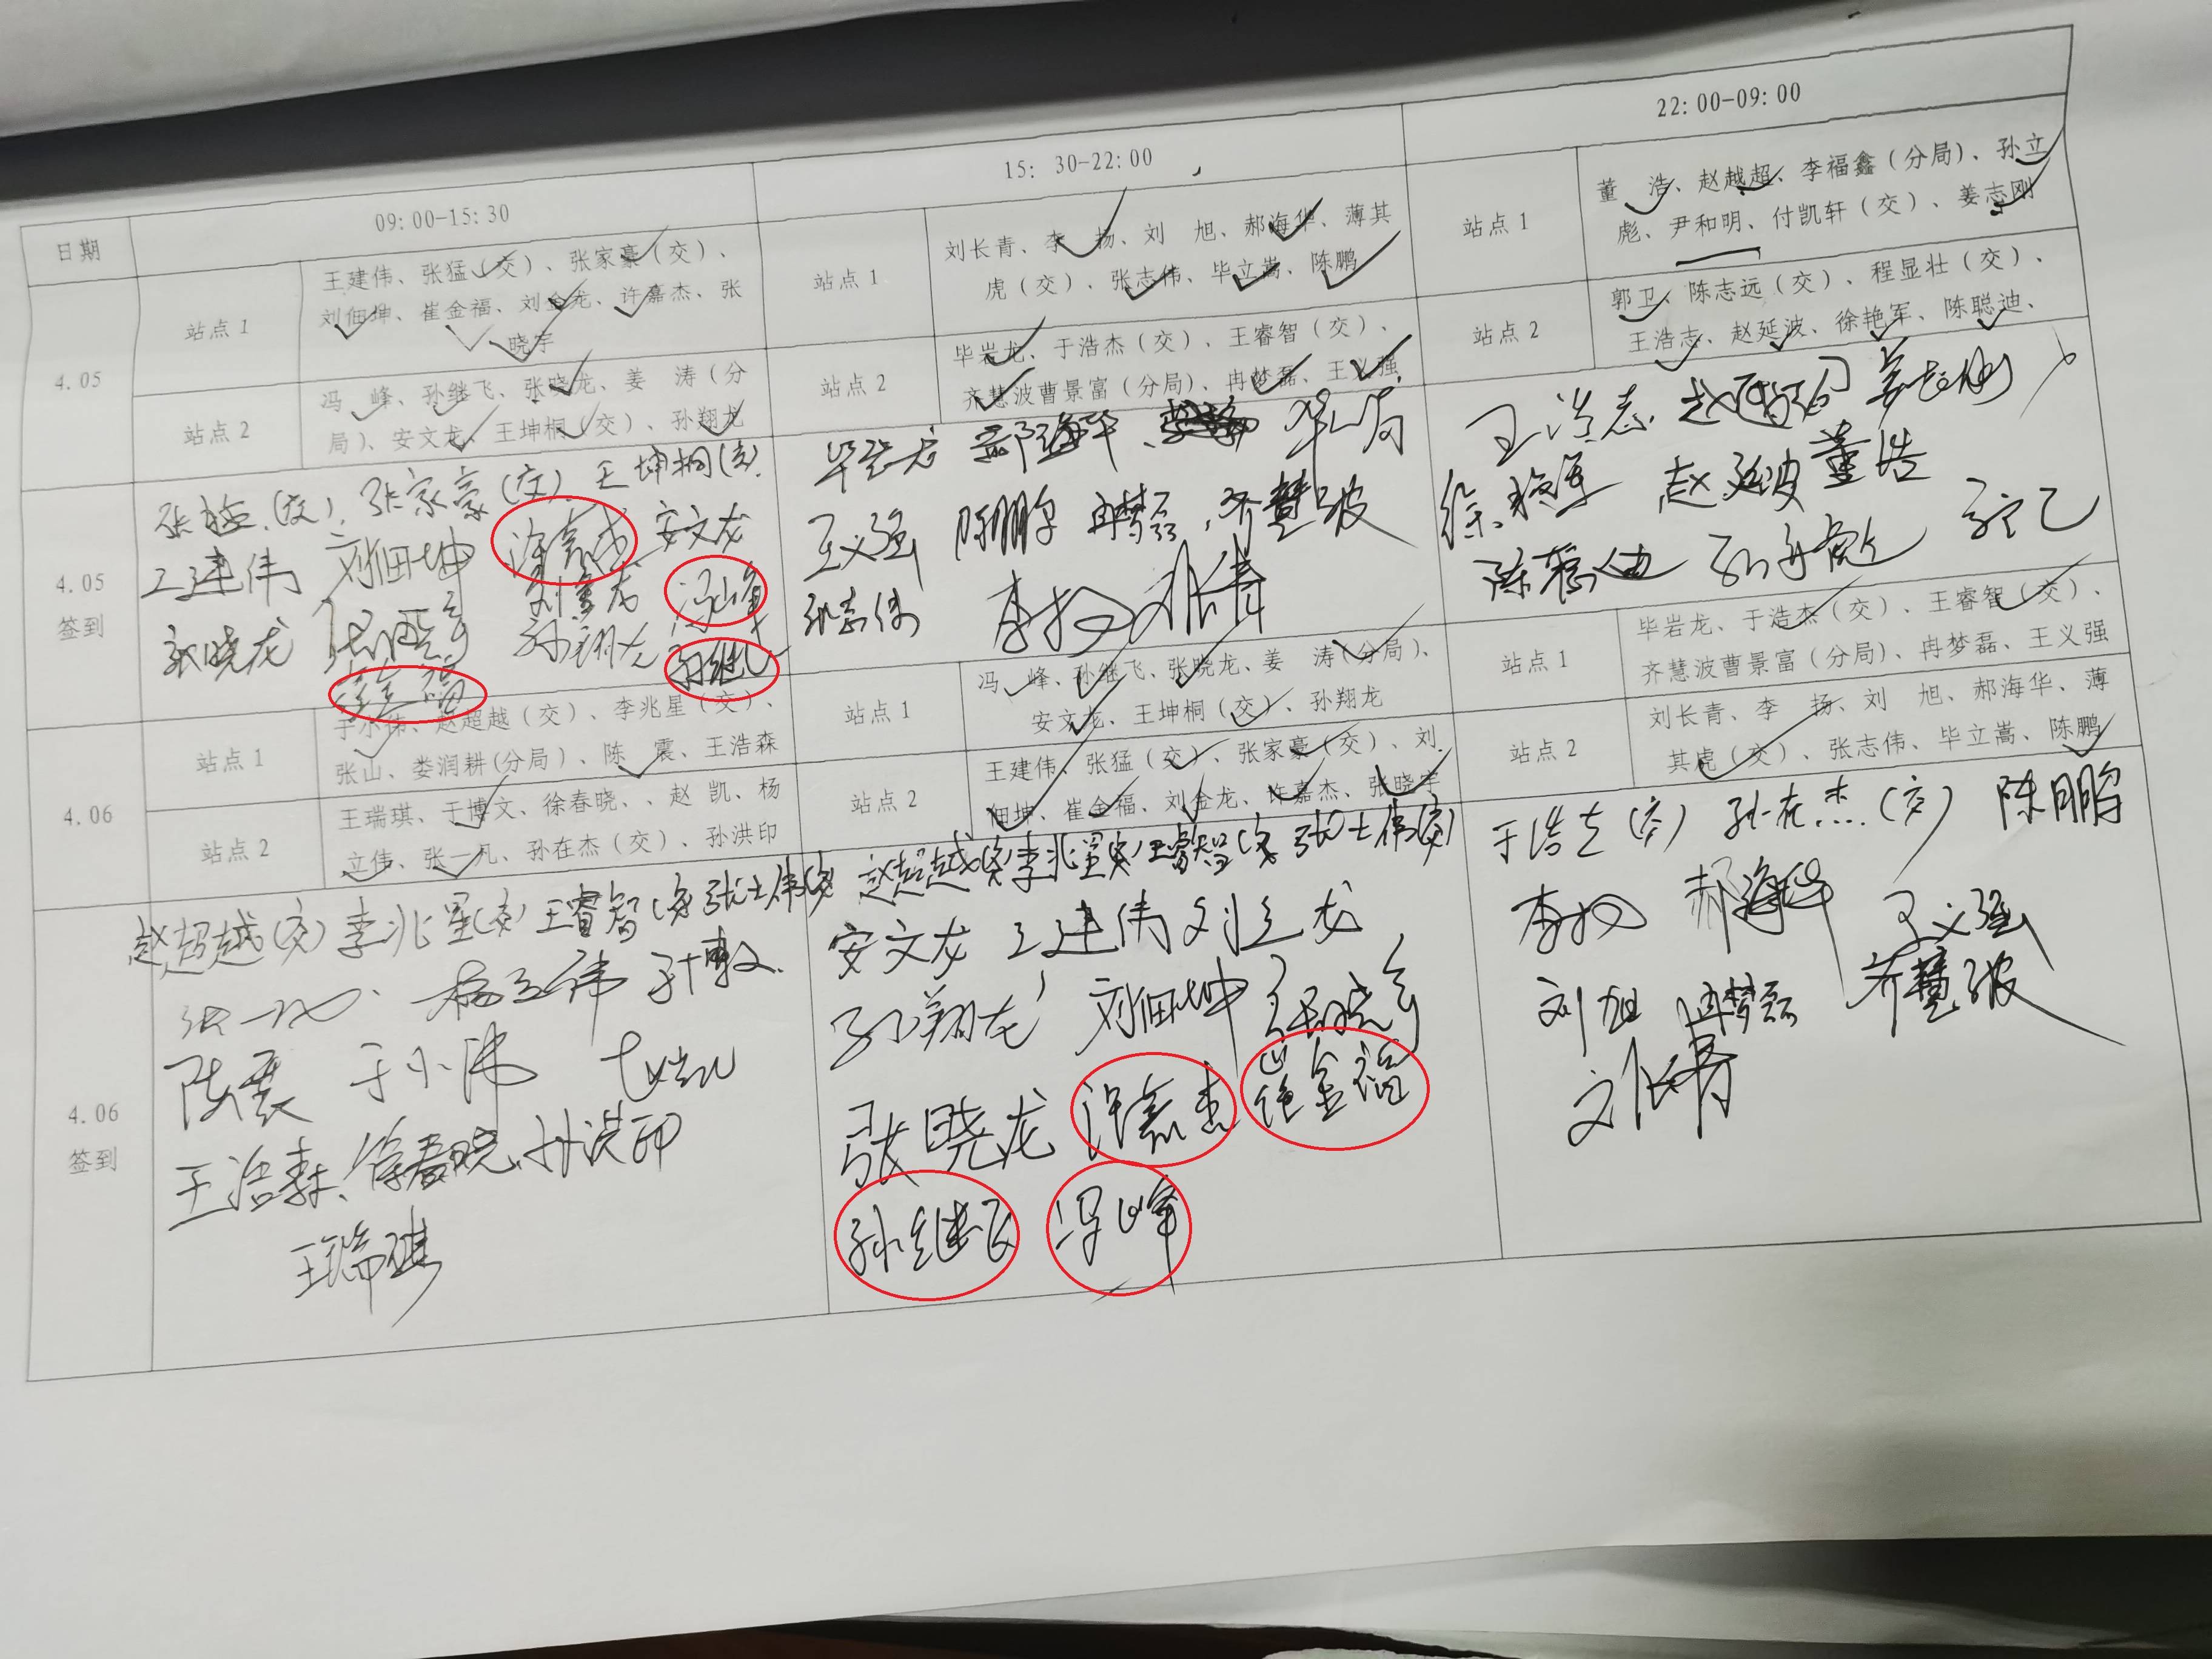 日期
09:00-15:30
15: 30-22:00
22:00-09:00
4.05
站点 1
王建伟、张猛（交）、张家豪（交）、
刘佃坤、崔金福、刘金龙、许嘉杰、张
晓宇
站点 2
冯 峰、孙继飞、张晓龙、姜 涛（分
局）、安文龙、王坤桐（交）、孙翔龙
站点 1
刘长青、李 扬、刘 旭、郝海华、薄其
虎（交）、张志伟、毕立嵩、陈鹏
站点 2
毕岩龙、于浩杰（交）、王睿智（交）、
齐慧波曹景富（分局）、冉梦磊、王义强
站点 1
董 浩、赵越超、李福鑫（分局）、孙立
彪、尹和明、付凯轩（交）、姜志刚
站点 2
郭卫、陈志远（交）、程显壮（交）、
王浩志、赵延波、徐艳军、陈聪迪、
4.05
签到
张猛（交）、张家豪（交） 王坤桐（交）
王建伟 刘佃坤 许嘉杰 安文龙
刘金龙 冯峰
张晓龙 张晓宇 孙翔龙 孙继飞
崔金福
毕岩龙 郝海华 毕立嵩
王义强 陈鹏 冉梦磊 齐慧波
张志伟 李扬 刘长青
王浩志 赵越超 姜志刚
徐艳军 赵延波 董浩
陈聪迪 孙立彪
4.06
站点 1
于小伟、赵超越（交）、李兆星（交）、
张山、娄润耕(分局）、陈 震、王浩森
站点 2
王瑞琪、于博文、徐春晓、、赵 凯、杨
立伟、张一凡、孙在杰（交）、孙洪印
站点 1
冯 峰、孙继飞、张晓龙、姜 涛（分局）、
安文龙、王坤桐（交）、孙翔龙
站点 2
王建伟、张猛（交）、张家豪（交）、刘
佃坤、崔金福、刘金龙、许嘉杰、张晓宇
站点 1
毕岩龙、于浩杰（交）、王睿智（交）、
齐慧波曹景富（分局）、冉梦磊、王义强
站点 2
刘长青、李 扬、刘 旭、郝海华、薄
其虎（交）、张志伟、毕立嵩、陈鹏
4.06
签到
赵超越（交）李兆星（交）王睿智（交）张士伟（交）
张一凡 杨立伟 于博文
陈震 于小伟
王浩森、徐春晓、孙洪印
王瑞琪
赵超越（交）李兆星（交）王睿智（交）张士伟（交）
安文龙 王建伟 刘金龙
孙翔龙 刘佃坤 张晓宇
张晓龙 许嘉杰 崔金福
孙继飞 冯峰
于浩杰（交） 孙在杰（交） 陈鹏
李扬 郝海华 王义强
刘旭 冉梦磊 齐慧波
刘长青